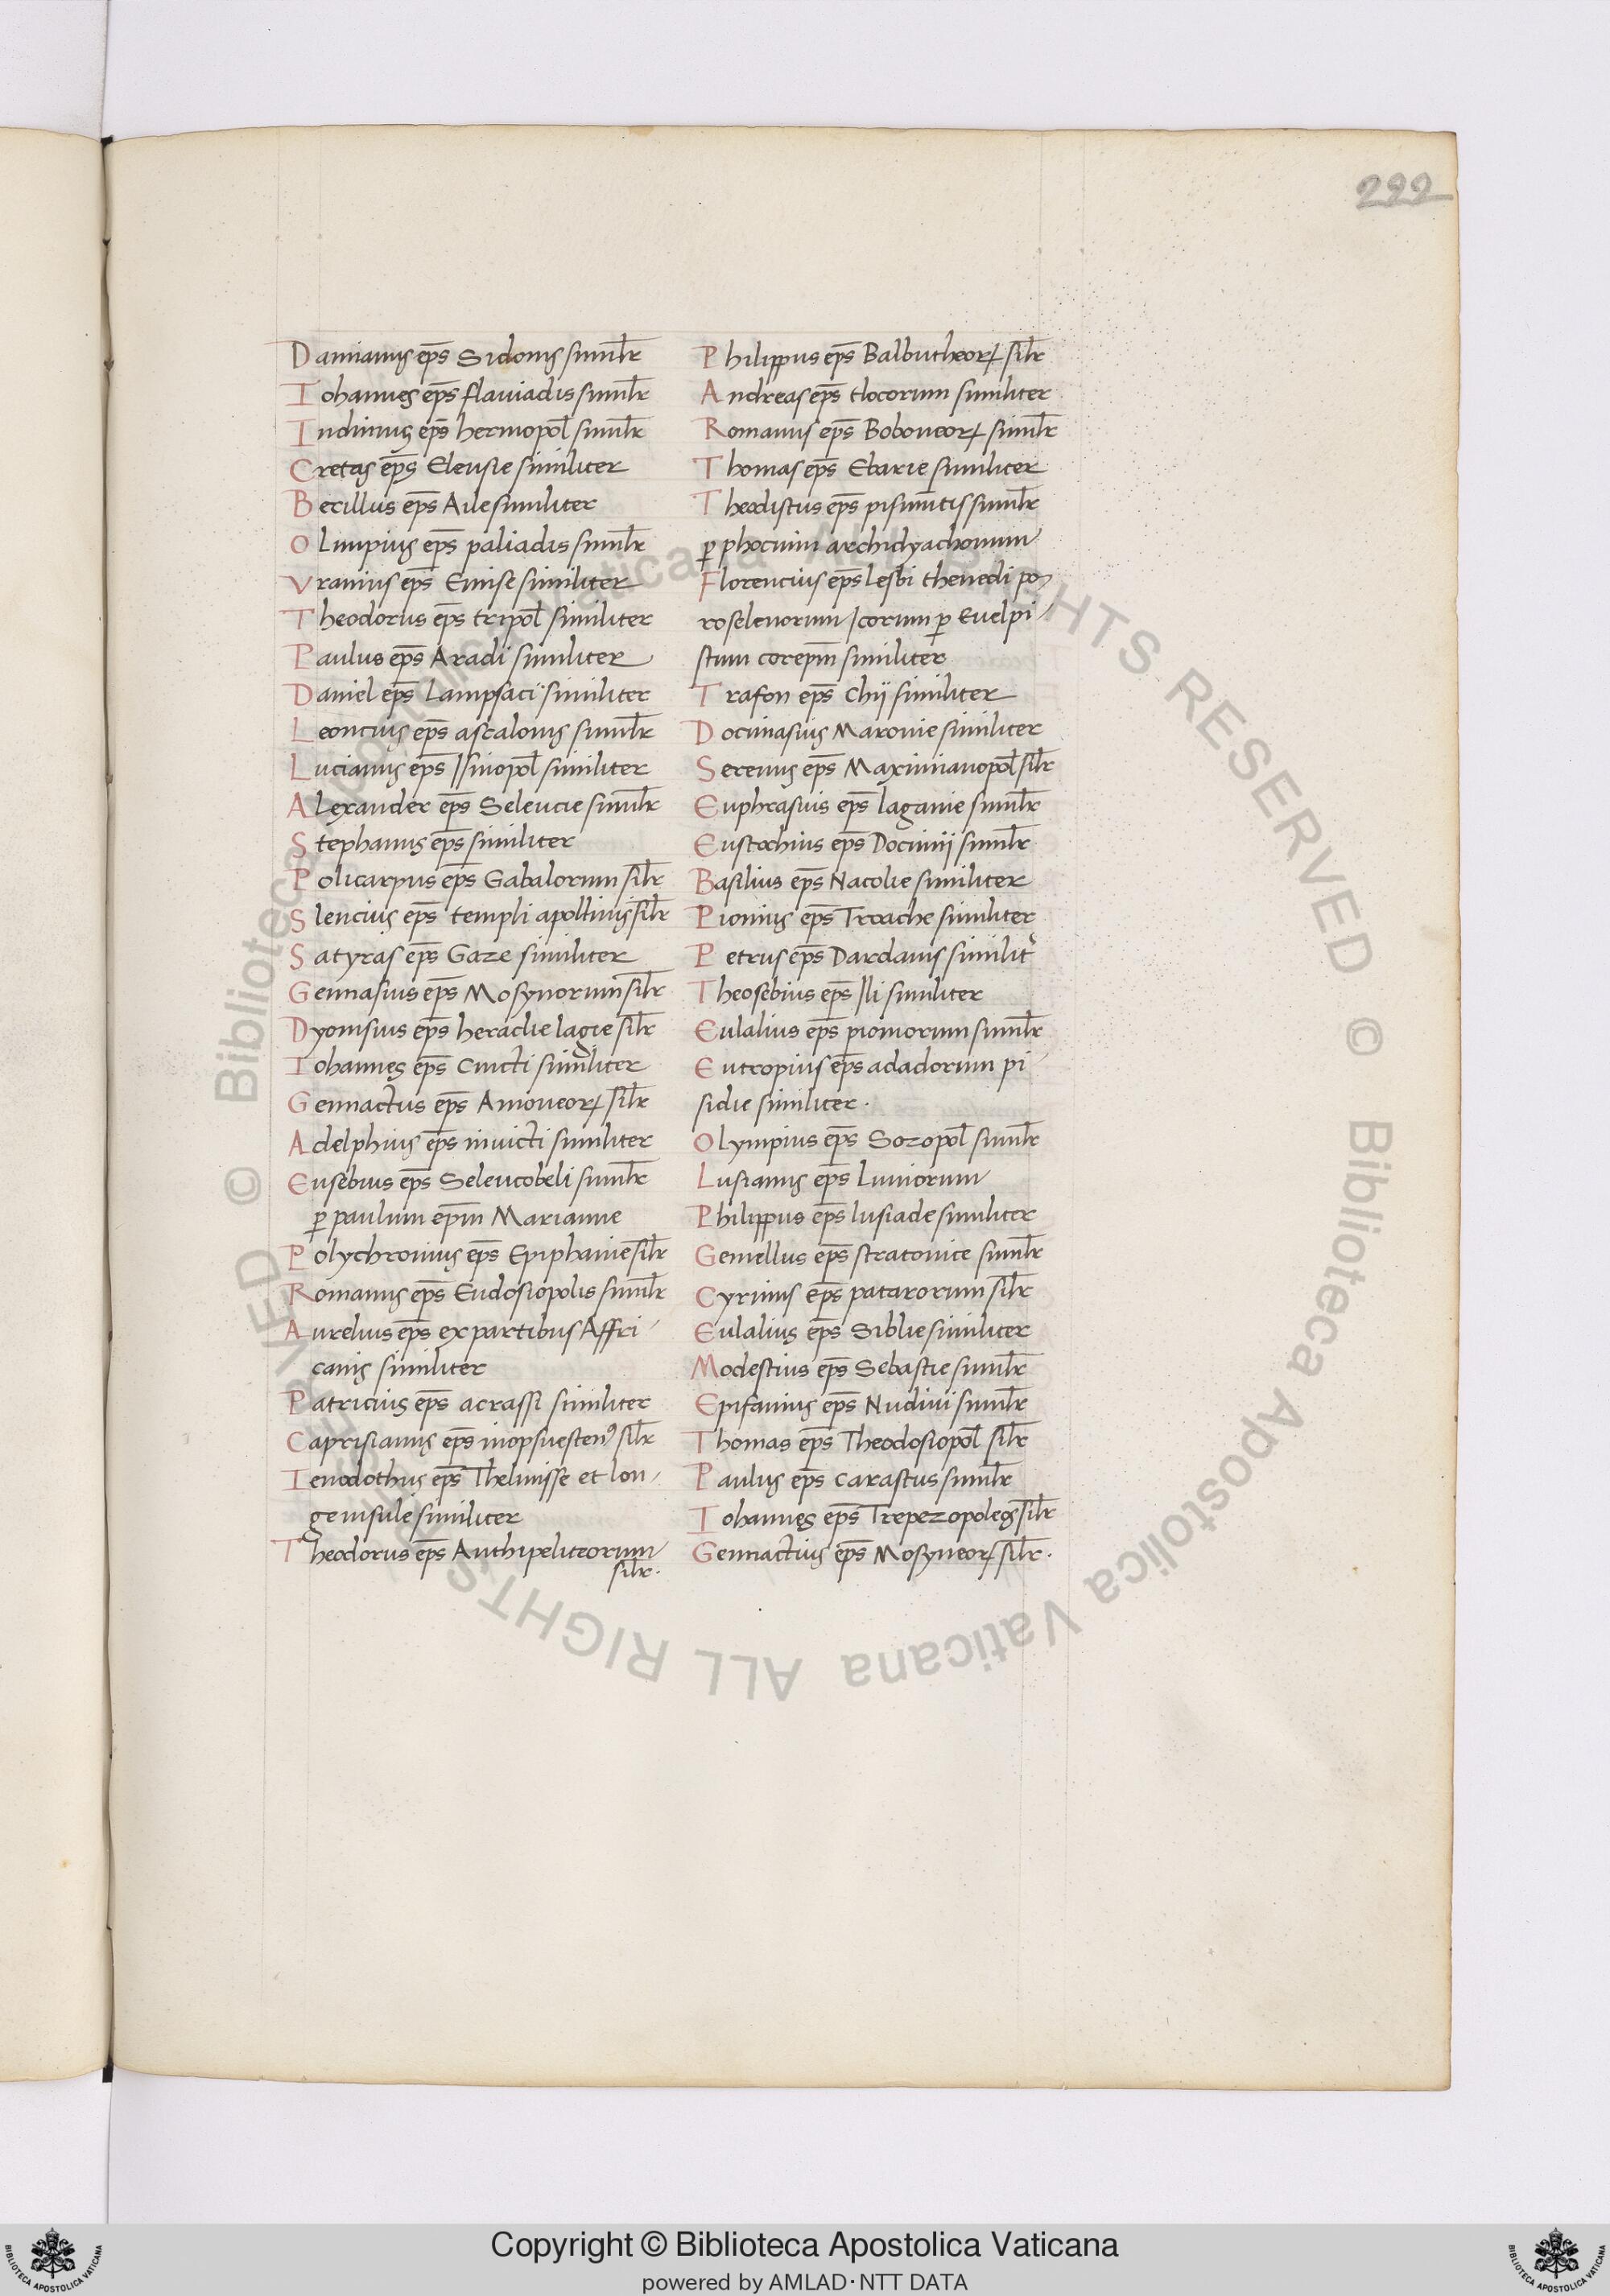 222
Damianus ep̅s Sidonis simil̅r
Iohannes ep̅s flauiadis simil̅r
Indimus ep̅s hermopol̅ simil̅r
Cretas ep̅s Eleusie similiter
Berillus ep̅s Aile similiter
Olimpius ep̅s paliadis simil̅r
Vranius ep̅s Emise similiter
Theodorus ep̅s tripol̅ similiter
Paulus ep̅s Aradi similiter
Daniel ep̅s Lampsaci similiter
Leoncius ep̅s ascalonis simil̅r
Lucianus ep̅s Ysinopol̅ similiter
Alexander ep̅s Seleucie simil̅r
Stephanus ep̅s similiter
Policarpus ep̅s Gabalorum sil̅r
Slencius ep̅s templi apollinis sil̅r
Satyras ep̅s Gaze similiter
Gennasius ep̅s Mosynorum sil̅r
Dyonisius ep̅s heraclie lagie sil̅r
Iohannes ep̅s Cuicti similiter
Gennactus ep̅s Amoneoꝝ sil̅r
Adelphius ep̅s inuicti similiter
Eusebius ep̅s Seleucobeli simil̅r
ꝑ paulum ep̅m Marianne
Polychronius ep̅s Epiphanie sil̅r
Romanus ep̅s Eudosiopolis simil̅r
Aurelius ep̅s ex partibus Affri
canis similiter
Patricius ep̅s acrassi similiter
Caprisianus ep̅s inopsuestenꝰ sil̅r
Ienodothus ep̅s Thelmisse et lon
ge insule similiter
Theodorus ep̅s Anthipeliteorum
sil̅r.
Philippus ep̅s Balbutheoꝝ sil̅r
Andreas ep̅s tlocorum similiter
Romanus ep̅s Boboneoꝝ simil̅r
Thomas ep̅s Ebarie similiter
Theodistus ep̅s pisinu̅tis simil̅r
ꝑ phocinim archidyachonum
Florencius ep̅s lesbi thenedi po
roselenorum Icorum ꝑ Euelpi
stum corep̅m similiter
Trafon ep̅s Chij similiter
Docimasius Maronie similiter
Serenus ep̅s Maximianopol̅ sil̅r
Euphrasius ep̅s laganie simil̅r
Eustochius ep̅s Docimij simil̅r
Basilius ep̅s Nacolie similiter
Pionius ep̅s Troache similiter
Petrus ep̅s Dardanis similit
Theosebius ep̅s Yli similiter
Eulalius ep̅s piomorum simil̅r
Eutropius ep̅s adadorum pi
sidie similiter.
Olympius ep̅s Sozopol̅ simil̅r
Lusianus ep̅s Luniorum
Philippus ep̅s lusiade similiter
Gemellus ep̅s stratonice simil̅r
Cyrinus ep̅s patarorum sil̅r
Eulalius ep̅s Siblie similiter
Modestius ep̅s Sebastie simil̅r
Epifanius ep̅s Nudiuij simil̅r
Thomas ep̅s Theodosiopol̅ sil̅r
Paulus ep̅s carastus simil̅r
Iohannes ep̅s Trepezopoleos sil̅r
Gennactius ep̅s Mosyneoꝝ sil̅r.
© Biblioteca Apostolica Vaticana ALL RIGHTS RESERVED
© Biblioteca Apostolica Vaticana ALL RIGHTS RESERVED
Copyright © Biblioteca Apostolica Vaticana
powered by AMLAD·NTT DATA
BIBLIOTECA APOSTOLICA VATICANA
BIBLIOTECA APOSTOLICA VATICANA